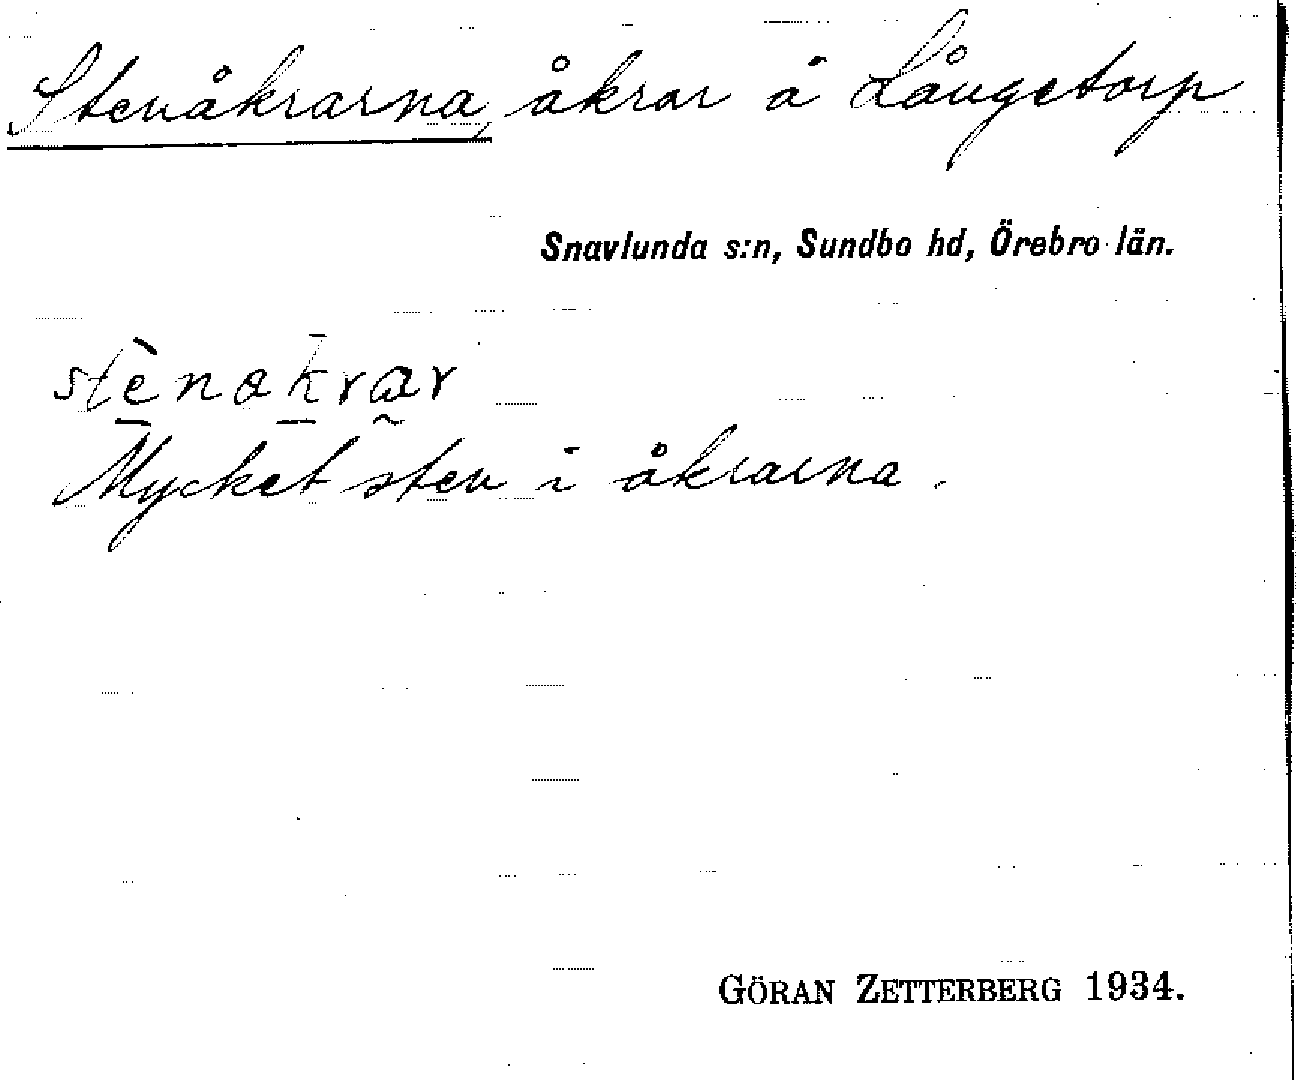 Stenåkrarna, åkrar å Långetorp
Snavlunda s:n, Sundbo hd, Örebro län.
stènakrar
Mycket sten i åkrarna.
GÖRAN ZETTERBERG 1934.